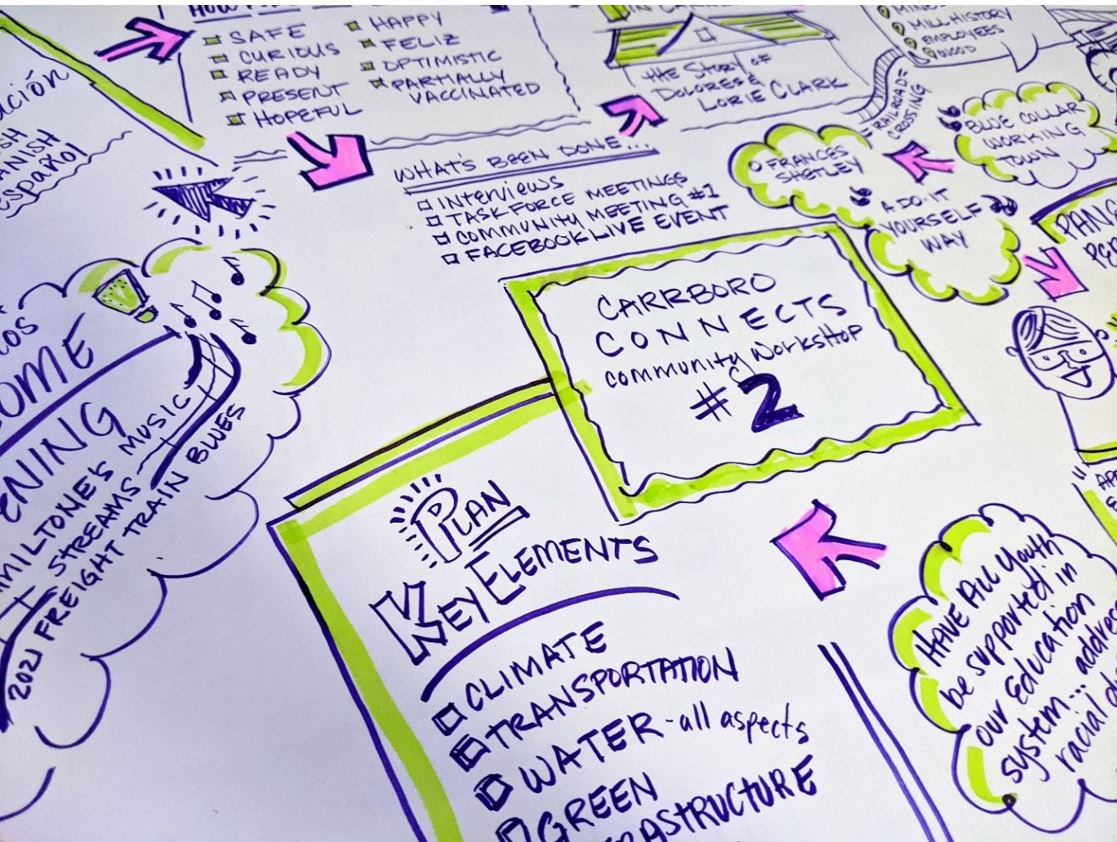 SAFE
CURIOUS
READY
PRESENT
HOPEFUL
HAPPY
FELIZ
OPTIMISTIC
PARTIALLY
VACCINATED
the Story of
DOLORES &
LORIE CLARK
MILL HISTORY
EMPLOYEES
RAILROAD =
CROSSING
BLUE COLLAR
WORKING
TOWN
FRANCES
SHETLEY
A DO IT
YOURSELF
WAY
español
WHAT'S BEEN DONE...
INTERVIEWS
TASK FORCE MEETINGS
COMMUNITY MEETING #1
FACEBOOK LIVE EVENT
CARRBORO
CONNECTS
community Workshop
#2
MUSIC
STREAMS
2021 FREIGHT TRAIN BLUES
PLAN
KEY ELEMENTS
CLIMATE
TRANSPORTATION
WATER - all aspects
GREEN
HAVE All Youth
be supported in
our Education
system... address
racial